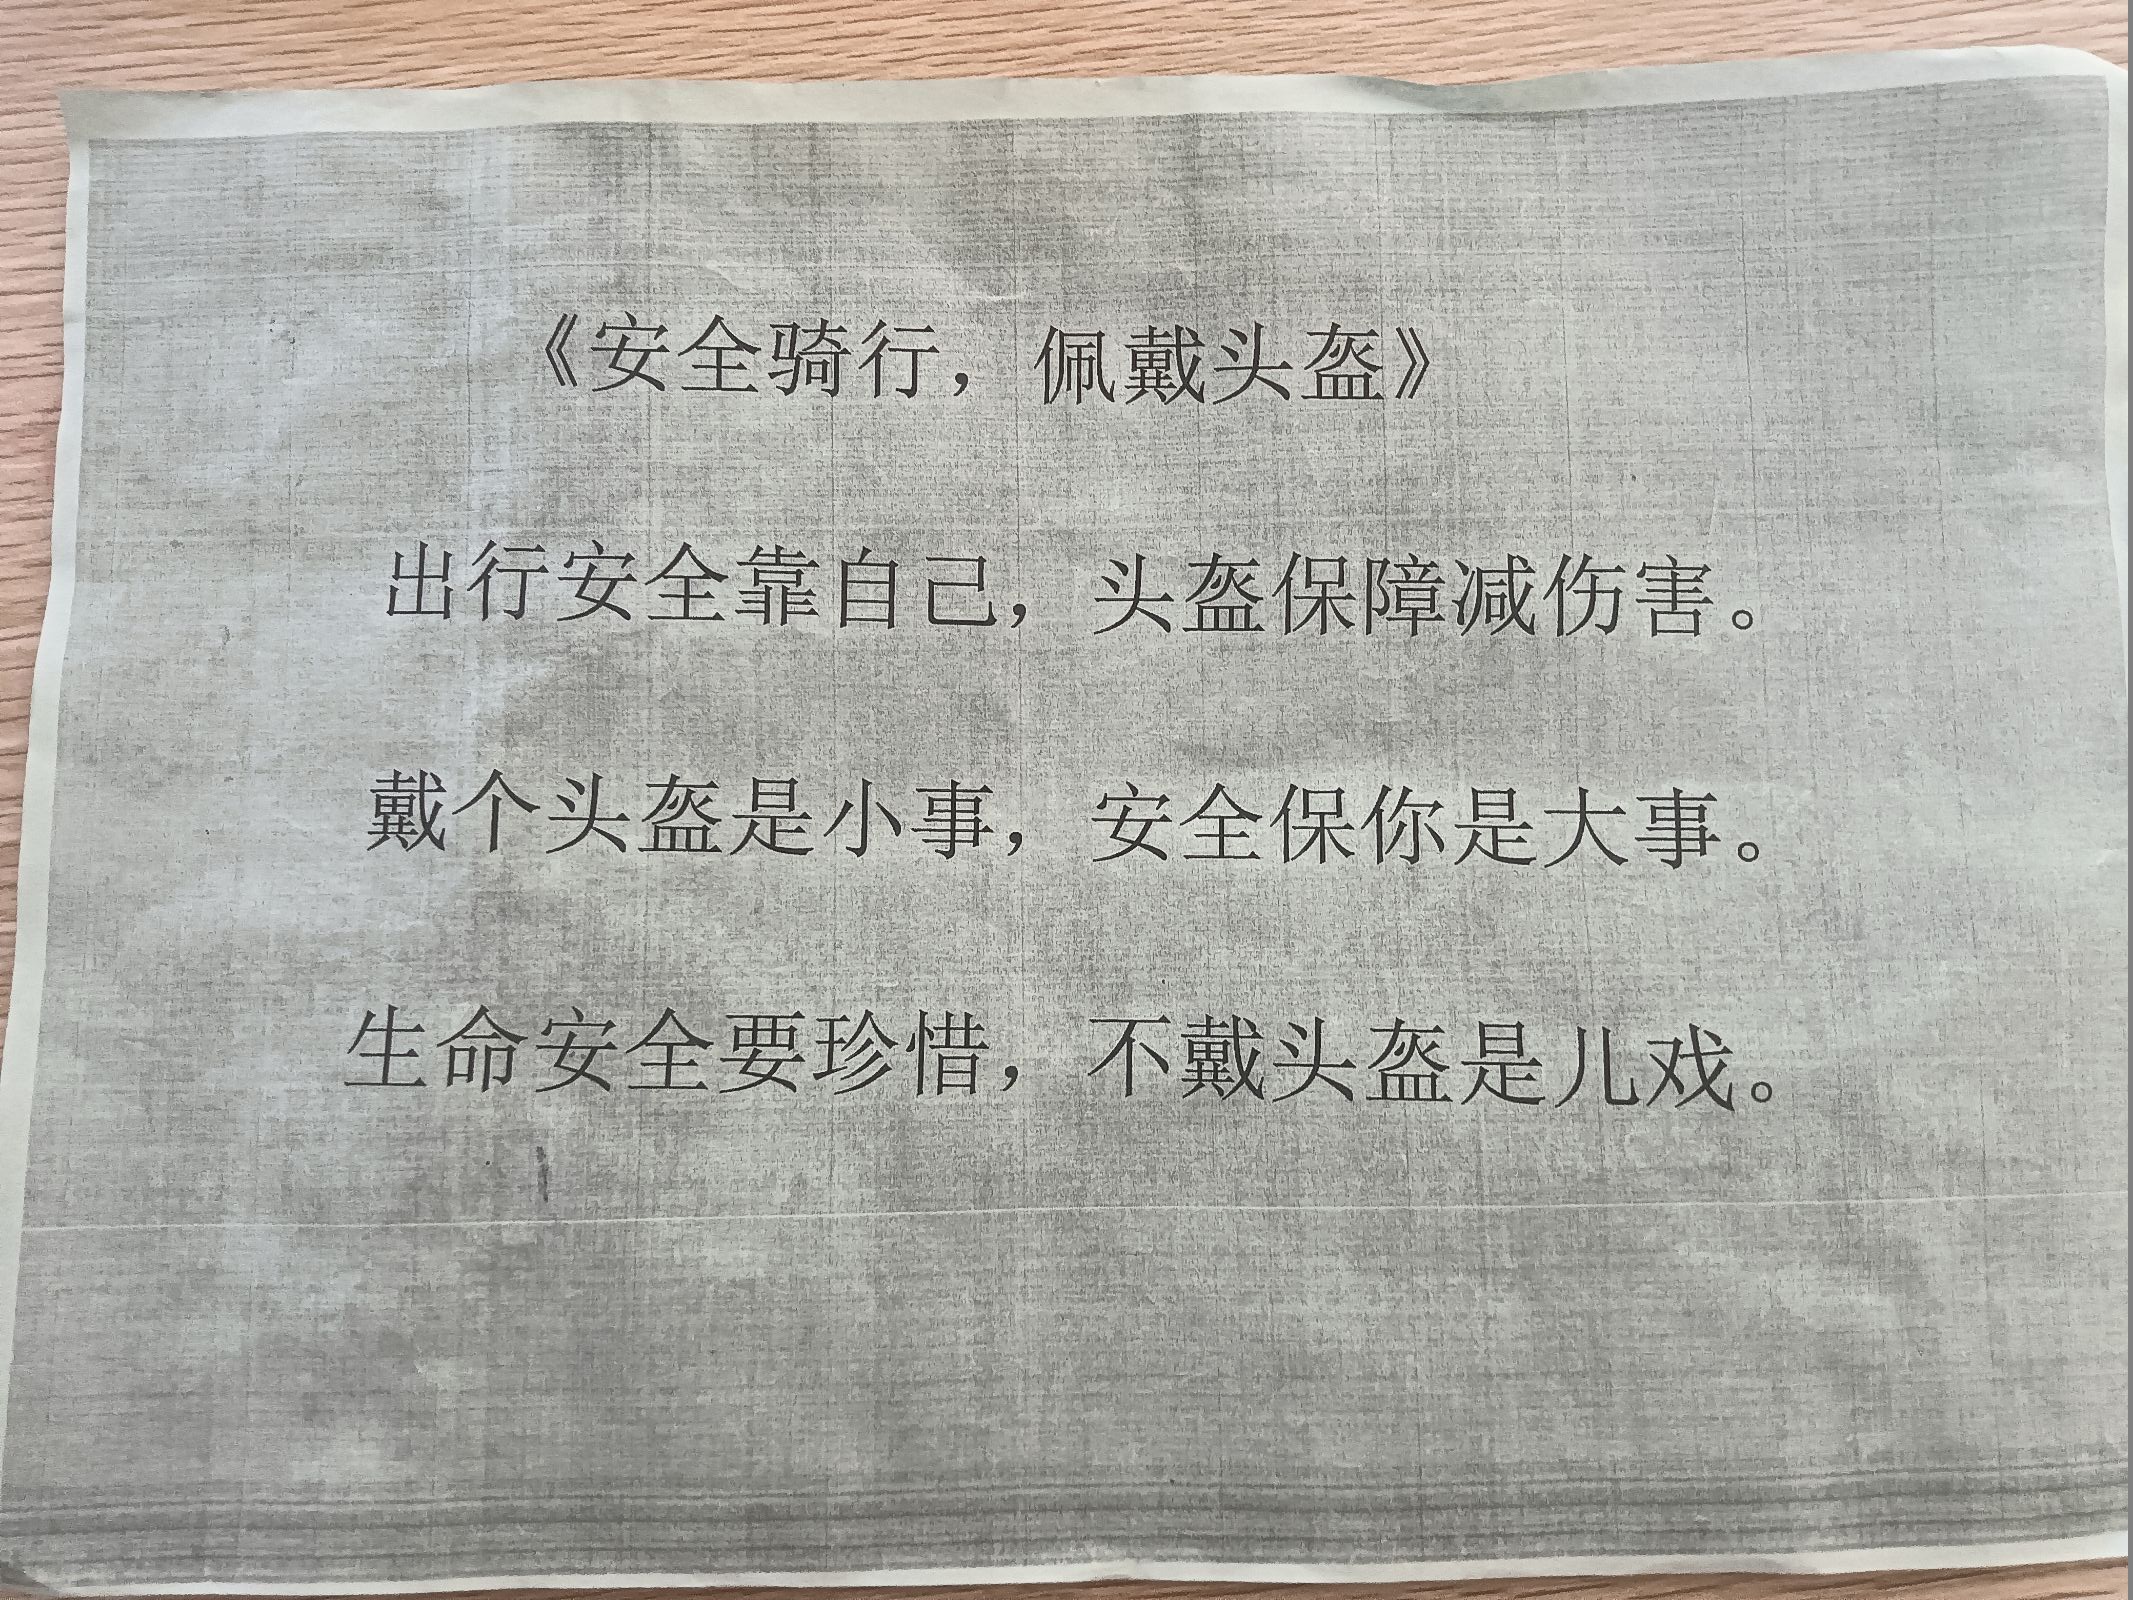 《安全骑行，佩戴头盔》
出行安全靠自己，头盔保障减伤害。
戴个头盔是小事，安全保你是大事。
生命安全要珍惜，不戴头盔是儿戏。